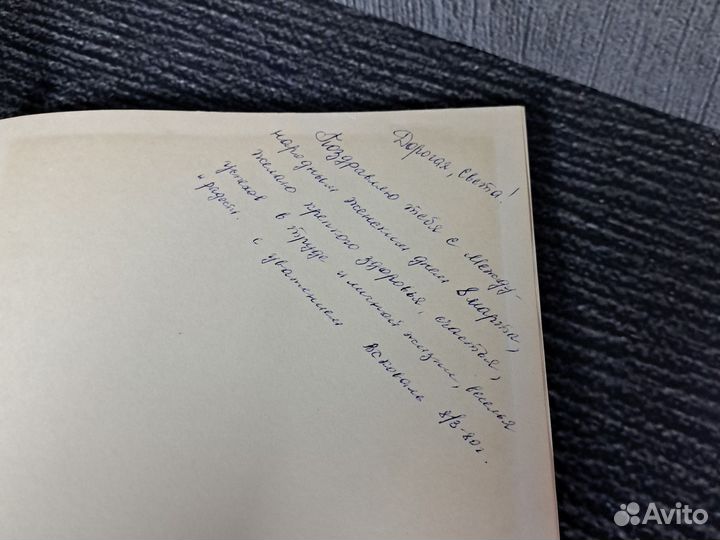 Дорогая, Света!
Поздравляю тебя с Между-
народным женским днем 8 марта,
желаю крепкого здоровья, счастья,
успехов в труде и личной жизни, веселья
и радости.
с уважением 8/3-80г.
Avito